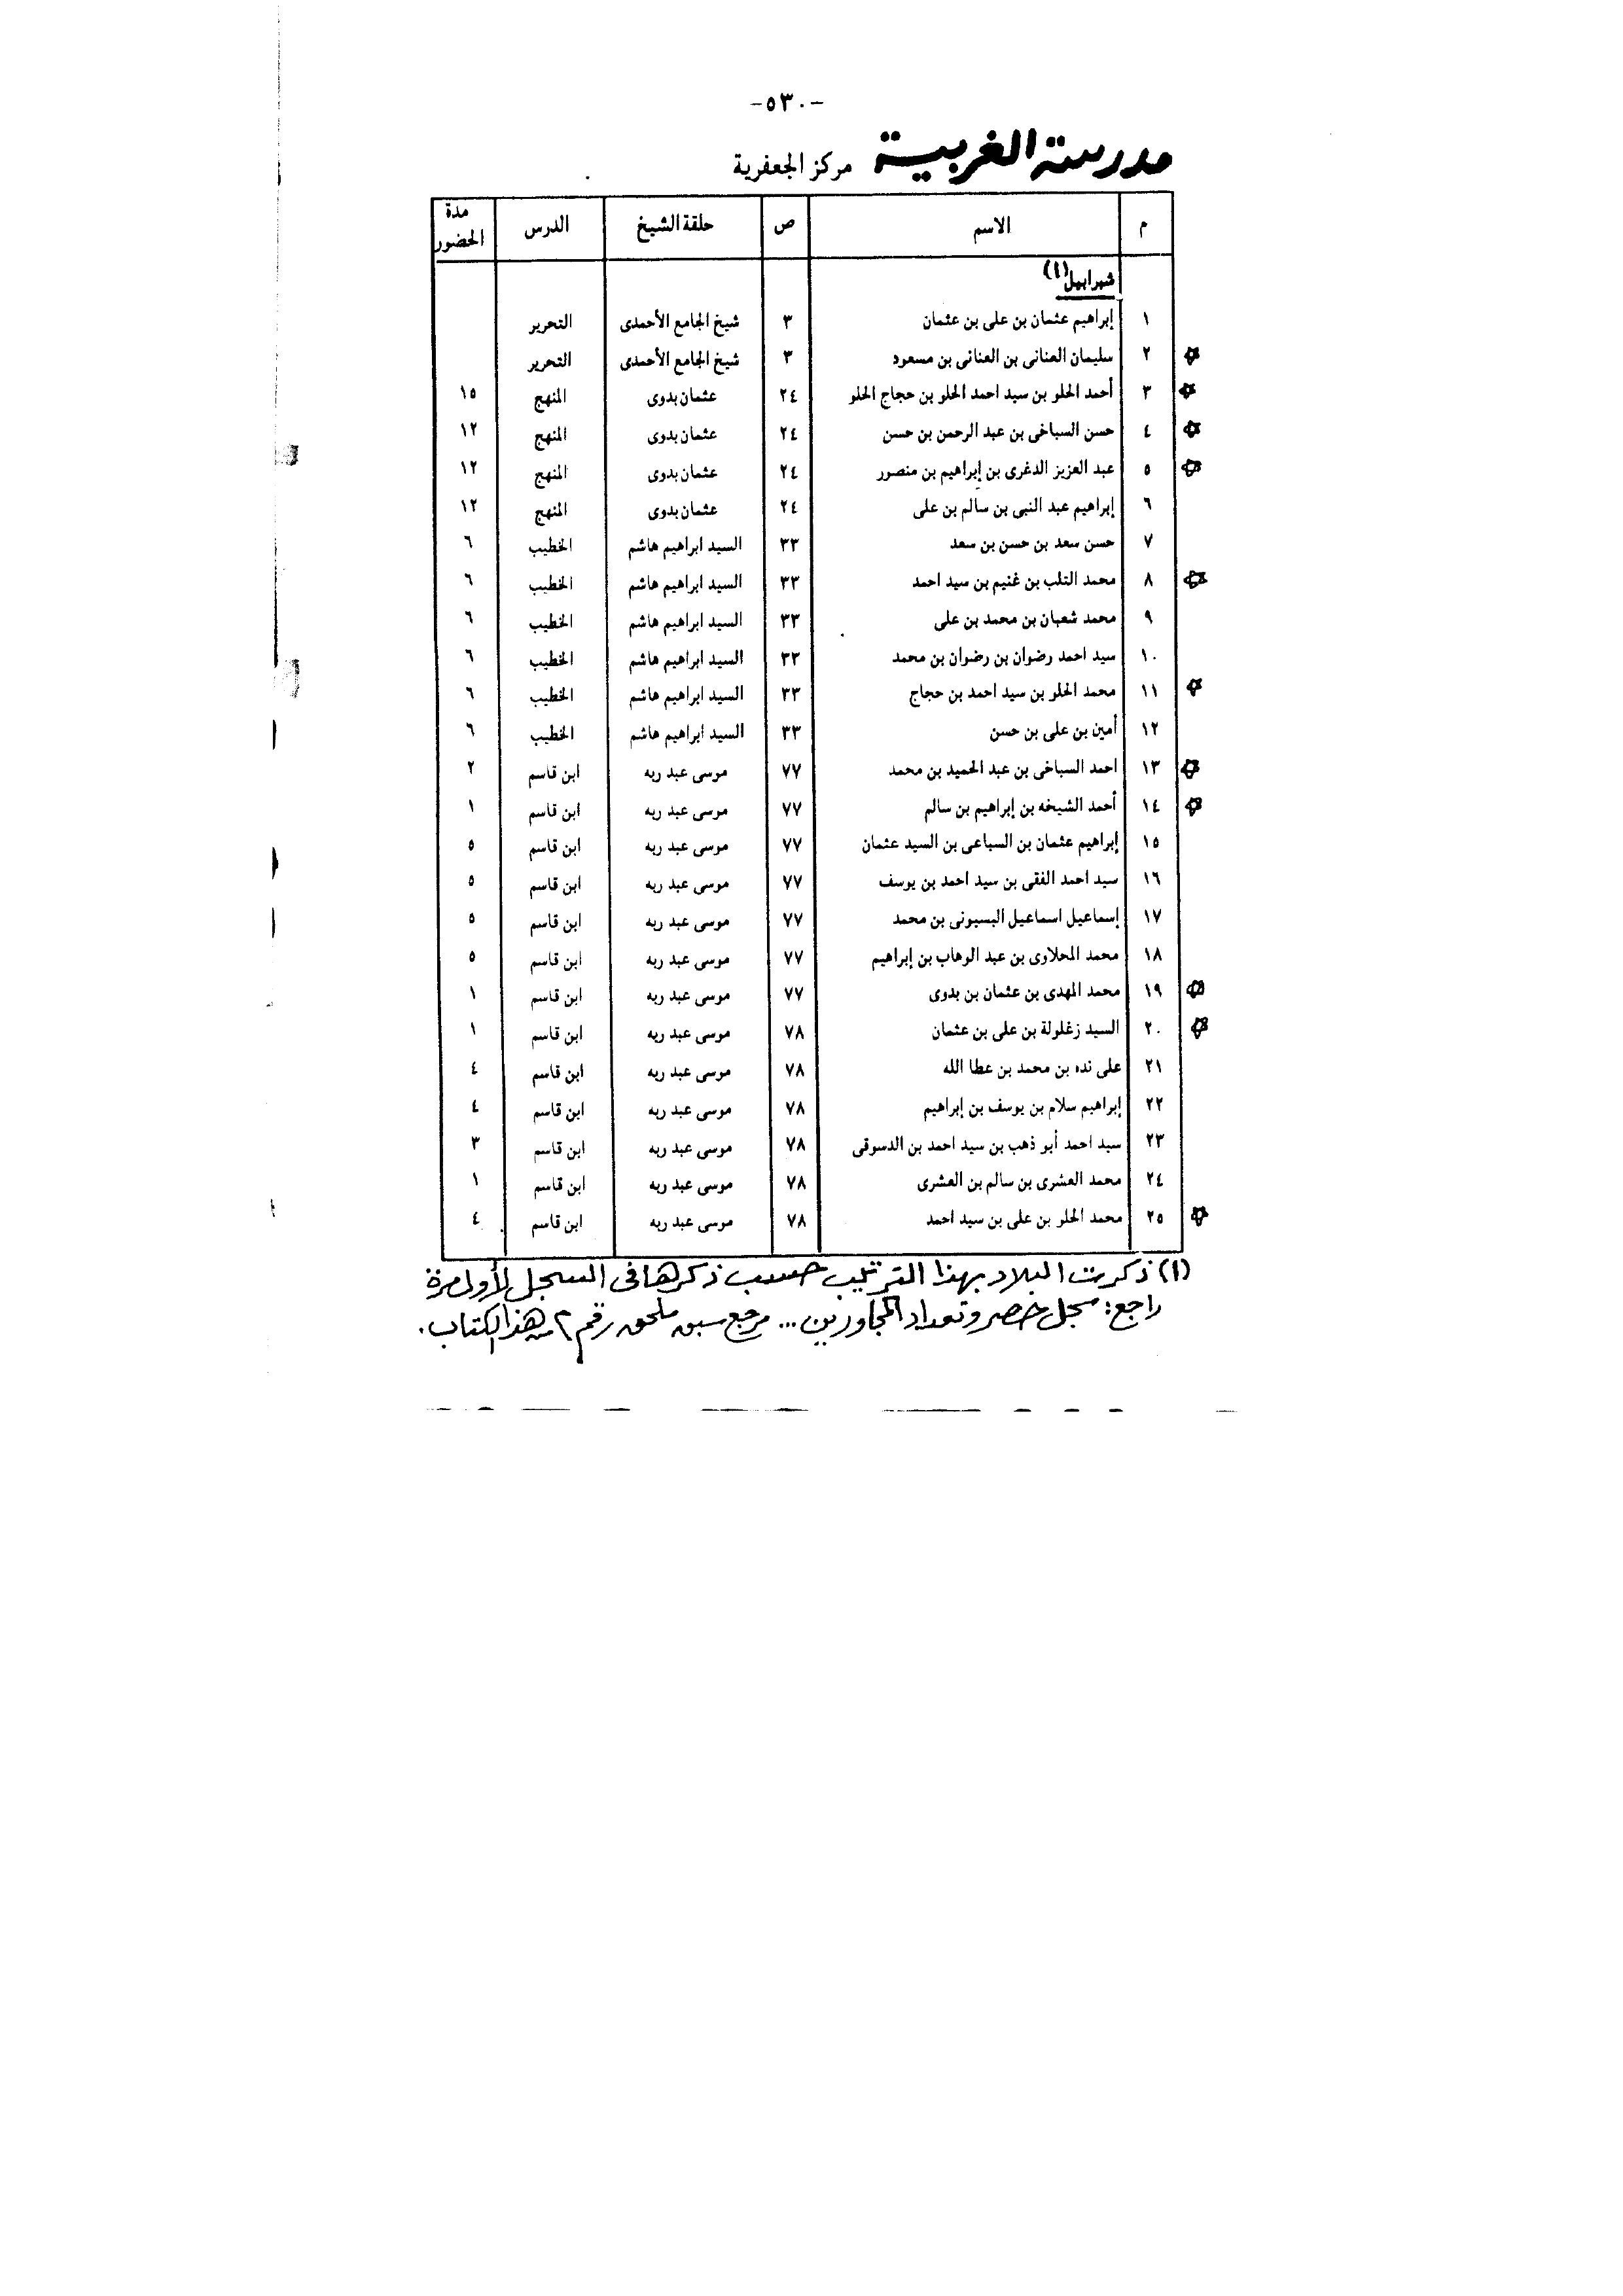 -٥٣٠-
مدرسة الغربية مركز الجعفرية
م الاسم ص حلقة الشيخ الدرس مدة الحضور
شبرابيل (١)
١ إبراهيم عثمان بن على بن عثمان ٣ شيخ الجامع الأحمدى التحرير
٢ سليمان العنانى بن العنانى بن مسعود ٣ شيخ الجامع الأحمدى التحرير
٣ أحمد الحلو بن سيد احمد الحلو بن حجاج الحلو ٢٤ عثمان بدوى المنهج ١٥
٤ حسن السباخى بن عبد الرحمن بن حسن ٢٤ عثمان بدوى المنهج ١٢
٥ عبد العزيز الدغرى بن إبراهيم بن منصور ٢٤ عثمان بدوى المنهج ١٢
٦ إبراهيم عبد النبى بن سالم بن على ٢٤ عثمان بدوى المنهج ١٢
٧ حسن سعد بن حسن بن سعد ٣٣ السيد ابراهيم هاشم الخطيب ٦
٨ محمد التلب بن غنيم بن سيد احمد ٣٣ السيد ابراهيم هاشم الخطيب ٦
٩ محمد شعبان بن محمد بن على ٣٣ السيد ابراهيم هاشم الخطيب ٦
١٠ سيد احمد رضوان بن رضوان بن محمد ٣٣ السيد ابراهيم هاشم الخطيب ٦
١١ محمد الحلو بن سيد احمد بن حجاج ٣٣ السيد ابراهيم هاشم الخطيب ٦
١٢ أمين بن على بن حسن ٣٣ السيد ابراهيم هاشم الخطيب ٦
١٣ احمد السباخى بن عبد الحميد بن محمد ٧٧ موسى عبد ربه ابن قاسم ٢
١٤ أحمد الشيخه بن إبراهيم بن سالم ٧٧ موسى عبد ربه ابن قاسم ١
١٥ إبراهيم عثمان بن السباعى بن السيد عثمان ٧٧ موسى عبد ربه ابن قاسم ٥
١٦ سيد احمد الفقى بن سيد احمد بن يوسف ٧٧ موسى عبد ربه ابن قاسم ٥
١٧ إسماعيل اسماعيل البسيونى بن محمد ٧٧ موسى عبد ربه ابن قاسم ٥
١٨ محمد المحلاوى بن عبد الوهاب بن إبراهيم ٧٧ موسى عبد ربه ابن قاسم ٥
١٩ محمد المهدى بن عثمان بن بدوى ٧٧ موسى عبد ربه ابن قاسم ١
٢٠ السيد زغلولة بن على بن عثمان ٧٨ موسى عبد ربه ابن قاسم ١
٢١ على نده بن محمد بن عطا الله ٧٨ موسى عبد ربه ابن قاسم ٤
٢٢ إبراهيم سلام بن يوسف بن إبراهيم ٧٨ موسى عبد ربه ابن قاسم ٤
٢٣ سيد احمد أبو ذهب بن سيد احمد بن الدسوقى ٧٨ موسى عبد ربه ابن قاسم ٣
٢٤ محمد العشرى بن سالم بن العشرى ٧٨ موسى عبد ربه ابن قاسم ١
٢٥ محمد الحلو بن على بن سيد احمد ٧٨ موسى عبد ربه ابن قاسم ٤
(١) ذكرت البلاد بهذا الترتيب حسب ذكرها فى السجل لأول مرة
راجع: سجل حصر وتعداد المجاورين ... مرجع سبق ملحق رقم ٢ من هذا الكتاب.